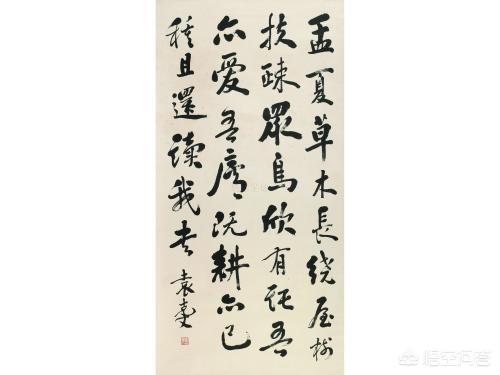 孟夏草木長绕屋树
扶疎眾鳥欣有託吾
亦愛吾廬既耕亦已
種且還讀我書 袁克文
悟空问答